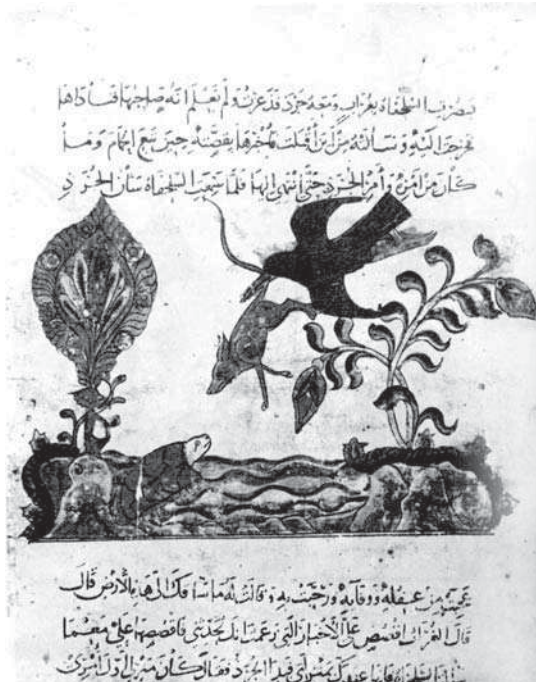 فبصرت السلحفاة بغراب ومعه جرذ فذعرت ولم تعلم انه صاحبها فناداها
فخرجت اليه وسالته من اين اقبلت فاخبرها بقصته حين تبع الحمام وما
كان من امره وامر الجرذ حتى انتهى اليها فلما سمعت السلحفاة شان الجرذ
عجبت من عقله ووفايه ورحبت به وقالت له ما ساقك الى هذه الارض قال
قال الغراب اقصص علي الاخبار التي زعمت انك تحدثني فاقصصها علي مع ما